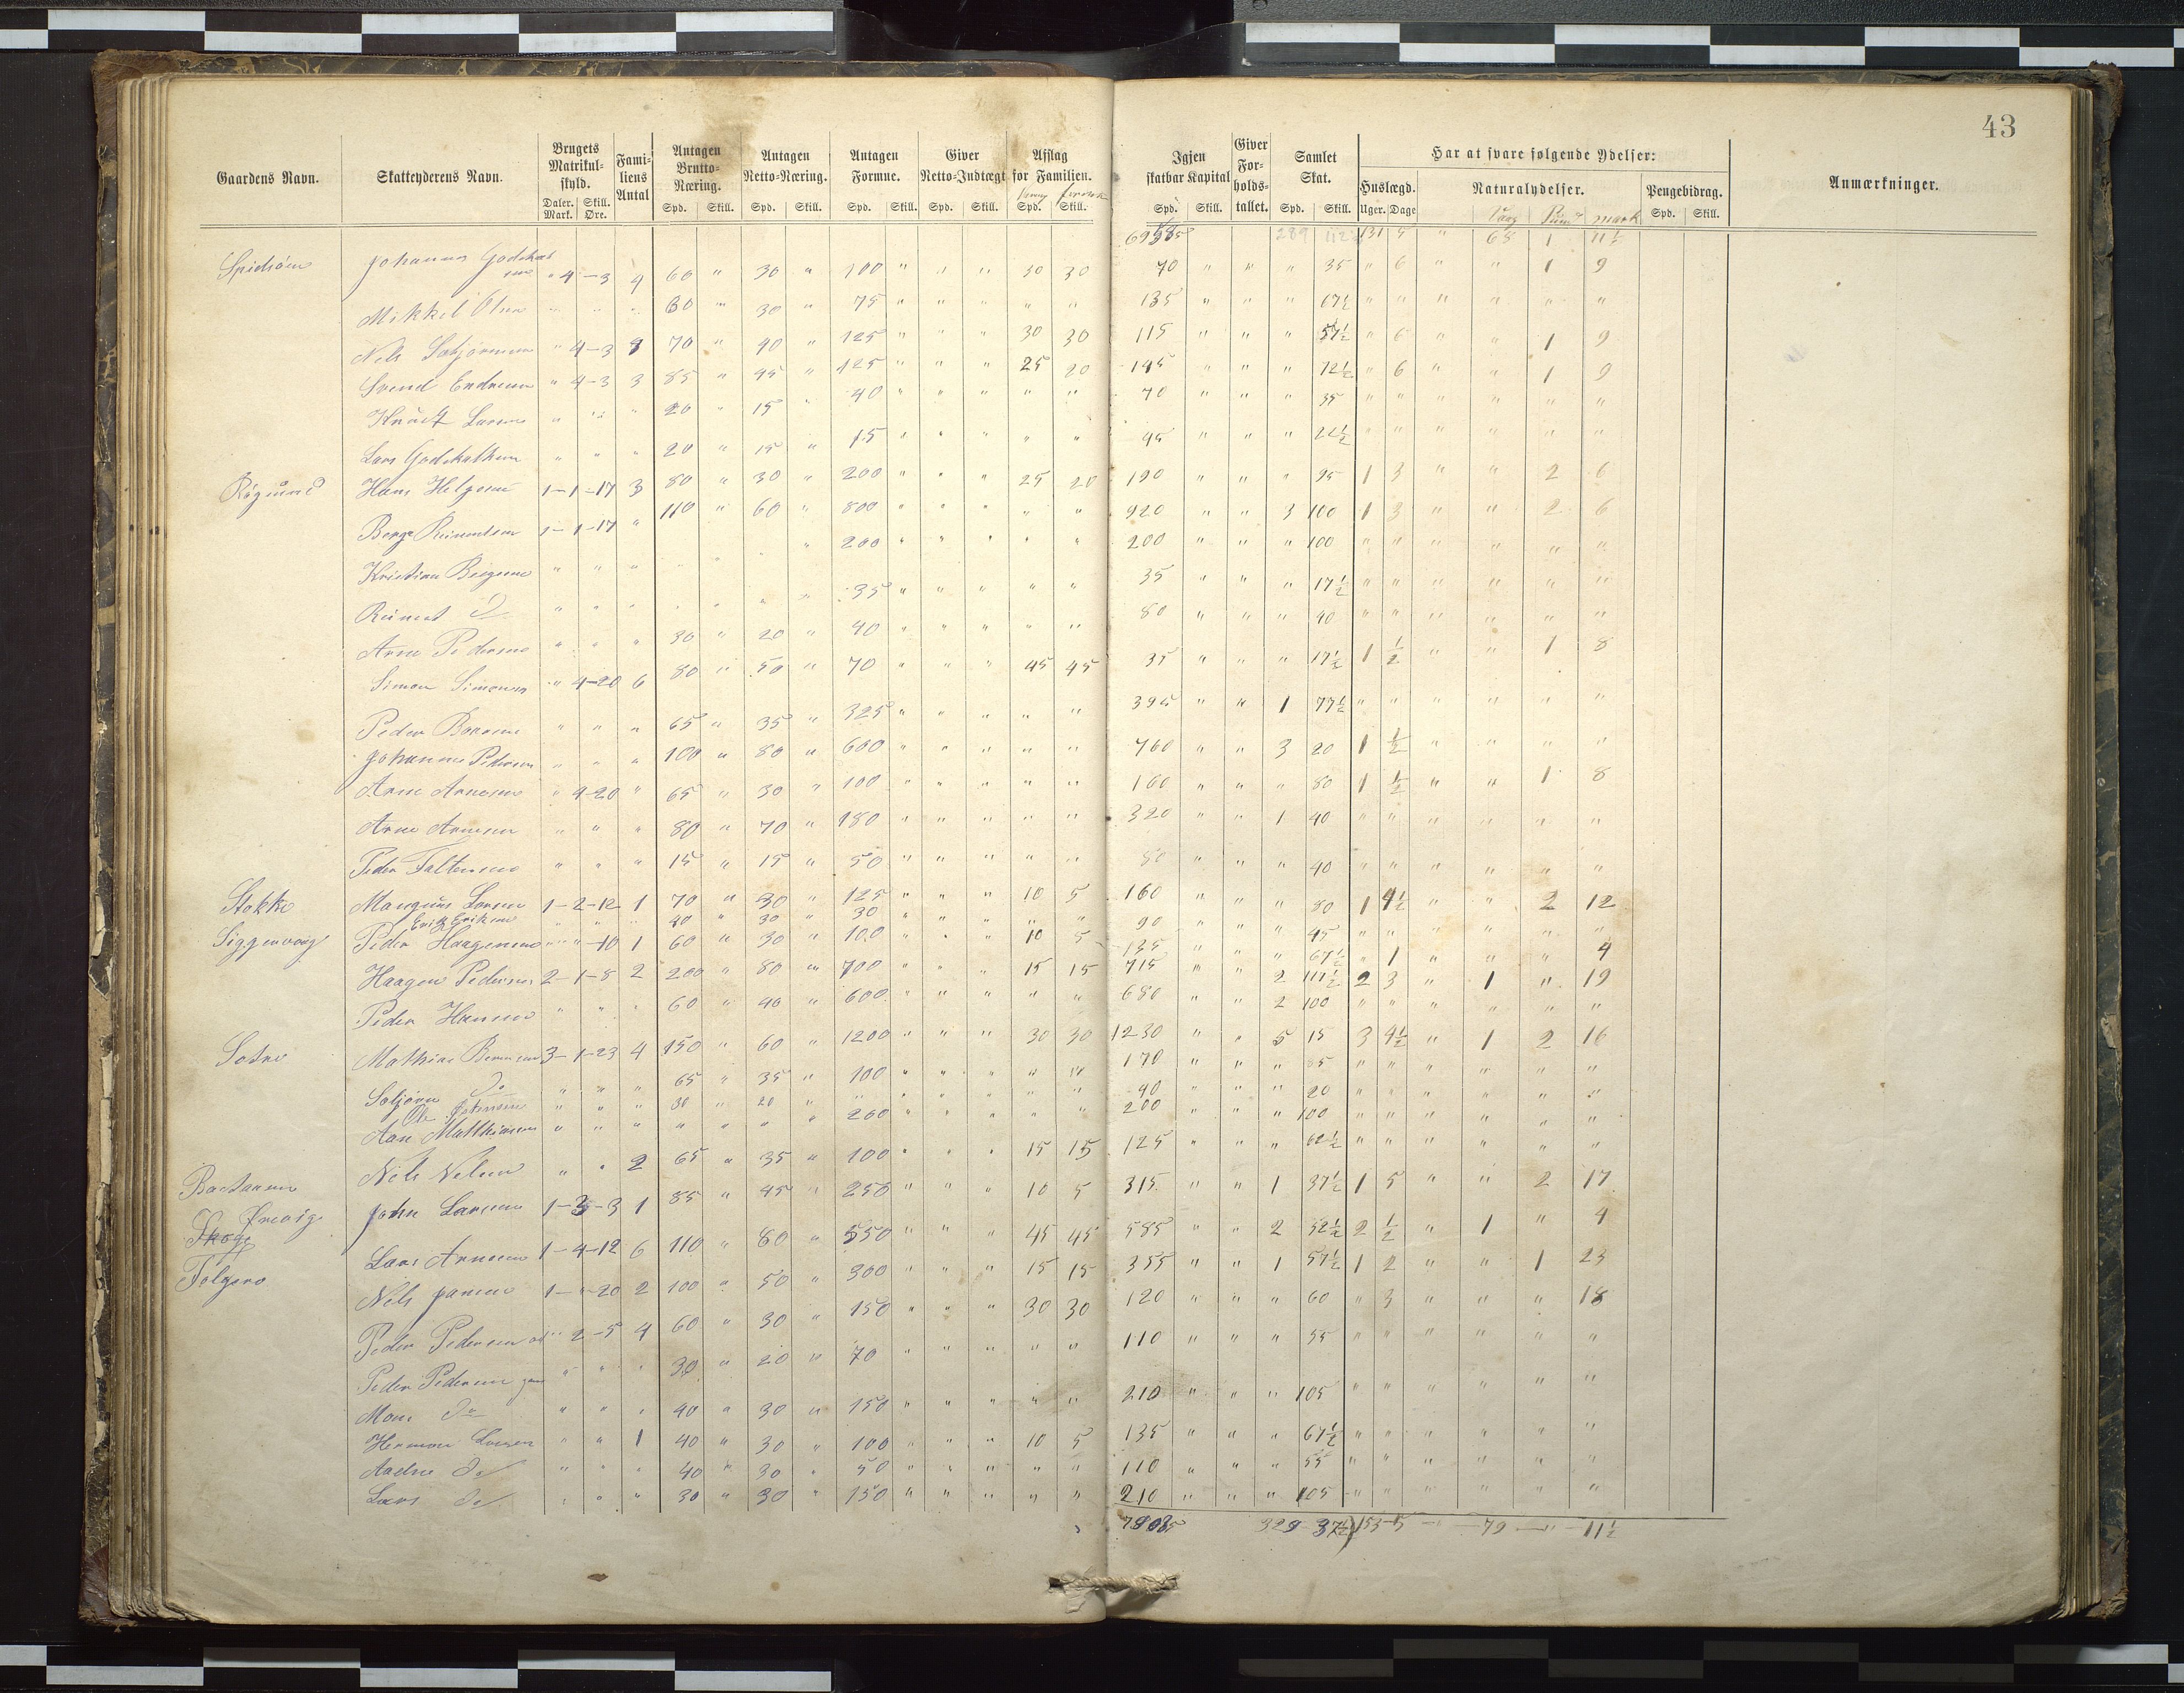 43
Gaardens Navn. Skatteyderens Navn. Brugets Matrikul-skyld. Fami-liens Antal Antagen Brutto-Næring. Antagen Netto-Næring. Antagen Formue. Giver Netto-Indtægt Afslag for Familien. Igjen skatbar Kapital Giver For-holds-tallet. Samlet Skat. Har at svare følgende Ydelser: Anmærkninger.
Huslægd. Naturalydelser. Pengebidrag.
Daler. Mark. Skill. Øre. Spd. Skill. Spd. Skill. Spd. Skill. Spd. Skill. Spd. Skill. Spd. Skill. Spd. Skill. Uger. Dage mark Spd. Skill.
289 112 131 5 " 68 1 11½
Johannes " 4-3 4 60 " 30 " 100 " " " 30 30 70 " " " 35 " 6 " " 1 9
Mikkel Olsen " " " 60 " 30 " 75 " " " " " 135 " " " 67½ " " " " " "
Nels " 4-3 70 " 40 " 125 " " " 30 30 115 " " " 57½ " 6 " " 1 9
Svend Endresen " 4-3 3 85 " 45 " 125 " " " 25 20 145 " " " 72½ " 6 " " 1 9
Larsen " " " 20 " 15 " 40 " " " " " 70 " " " 35 " " " " " "
Lars " " " 20 " 15 " 15 " " " " " 45 " " " 22½ " " " " " "
Hans Helgesen 1-1-17 3 80 " 30 " 200 " " " 25 20 190 " " " 95 1 3 " " 2 6
Berge 1-1-17 " 110 " 60 " 800 " " " " " 920 " " 3 100 1 3 " " 2 6
Kristian " " " " " " " 200 " " " " " 200 " " " 100 " " " " " "
Reinert Do " " " " " " " 35 " " " " " 35 " " " 17½ " " " " " "
Arne Pedersen " " " 30 " 20 " 40 " " " " " 80 " " " 40 " " " " " "
Simon Simonsen " 4-20 6 80 " 50 " 70 " " " 45 45 35 " " " 17½ 1 ½ " " 1 8
Peder " " " 65 " 35 " 325 " " " " " 395 " " 1 77½ " " " " " "
Johannes Pedersen " " " 100 " 80 " 600 " " " " " 760 " " 3 20 1 ½ " " " "
Arne Arnesen " 4-20 " 65 " 30 " 100 " " " " " 160 " " " 80 1 ½ " " 1 8
Arne Arnesen " " " 80 " 70 " 180 " " " " " 320 " " 1 40 " " " " " "
Peder " " " 15 " 15 " 50 " " " " " 80 " " " 40 " " " " " "
Stokke Mangnus Larsen 1-2-12 1 70 " 30 " 125 " " " 10 5 160 " " " 80 1 4½ " " 2 12
Erik Eriksen " " " 40 " 30 " 30 " " " " " 90 " " " 45 " " " " " "
Siggervaag Peder Haagensen " "-10 1 60 " 30 " 100 " " " 10 5 135 " " " 67½ " 1 " " " 4
Haagen Pedersen 2-1-8 2 200 " 80 " 700 " " " 15 15 715 " " 2 117½ 2 3 " 1 " 19
Peder Hansen " " " 60 " 40 " 600 " " " " " 680 " " 2 100 " " " " " "
Sotre Mathias 3-1-23 4 150 " 60 " 1200 " " " 30 30 1230 " " 5 15 3 4½ " 1 2 16
Do " " " 65 " 35 " 100 " " " " " 170 " " " 85 " " " " " "
Ole " " " 30 " 20 " " " " " " " 40 " " " 20 " " " " " "
Mathiasen " " " " " " " 200 " " " " " 200 " " " 100 " " " " " "
Nels Nelsen " " 2 65 " 35 " 100 " " " 15 15 125 " " " 62½ " " " " " "
John Larsen 1-3-3 1 85 " 45 " 250 " " " 10 5 315 " " 1 37½ 1 5 " " 2 17
Lars Arnesen 1-4-12 6 110 " 80 " 550 " " " 45 45 585 " " 2 52½ 2 ½ " 1 " 4
Nels Jansen 1-"-20 2 100 " 50 " 300 " " " 15 15 355 " " 1 57½ 1 2 " " 1 23
Peder Pedersen " 2-5 4 60 " 30 " 150 " " " 30 30 120 " " " 60 " 3 " " " 18
Peder Pedersen " " " 30 " 20 " 70 " " " " " 110 " " " 55 " " " " " "
Mons Do " " " 40 " 30 " 150 " " " " " 210 " " " 105 " " " " " "
Herman Larsen " " 1 40 " 30 " 100 " " " 10 5 135 " " " 67½ " " " " " "
Do " " " 40 " 30 " 50 " " " " " 110 " " " 55 " " " " " "
Lars Do " " " 30 " 30 " 150 " " " " " 210 " " " 105 " " " " " "
329 37½ 153-5 79 " 11½